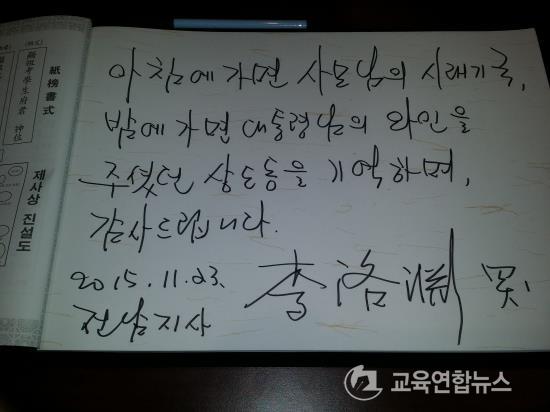 아침에 가면 사모님의 시래기국,
밤에 가면 대통령님의 와인을
주셨던 상도동을 기억하며,
감사드립니다.
2015.11.23.
전남지사
李洛淵 哭.
紙榜書式
顯祖考學生府君 神位
제사상 진설도
교육연합뉴스